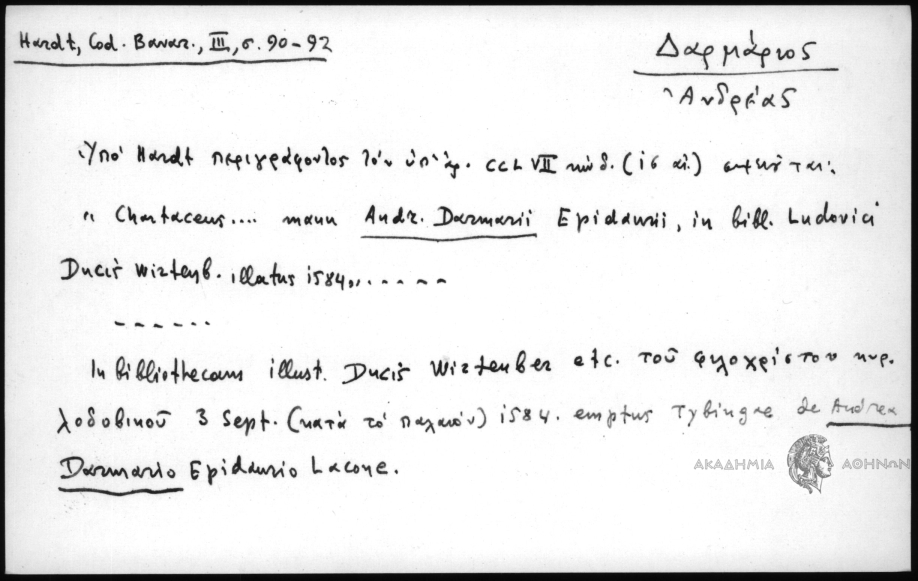 Hardt, Cod. Bavar., III, σ. 90-92
Δαρμάριος
Ἀνδρέας
Ὑπό Hardt περιγράφοντος τόν ὑπ' ἀρ. CCLVII κώδ. (ις αἰ.)
" Chartaceus.... manu Andr. Darmarii Epidaurii, in bibl. Ludovici
Ducis Wirtenb. illatus 1584,,.-----
------
In bibliothecam illust. Ducis Wirtenber etc. τοῦ φιλοχρίστου κυρ.
λοδοβικοῦ 3 Sept. (κατά τό παλαιόν) 1584. emptus Tybingae de Andrea
Darmario Epidaurio Lacone.
ΑΚΑΔΗΜΙΑ ΑΘΗΝΩΝ